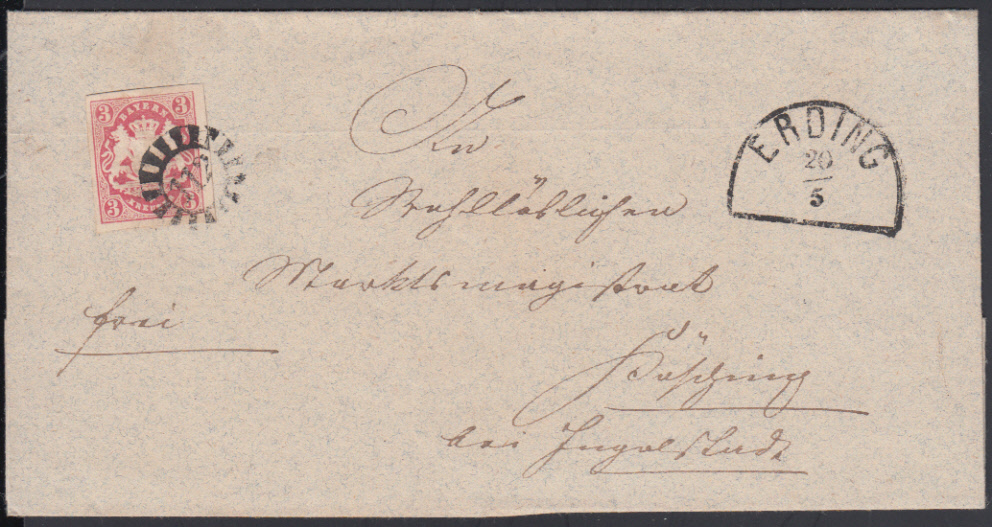 3 BAYERN 3
3 KREUZER
ERDING
20
5
An
Wohllöblichen
Marktsmagistrat
frei
Kösching
bei Ingolstadt